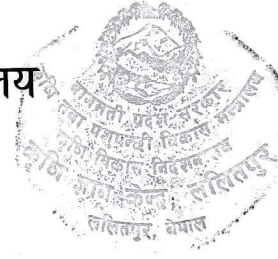 लय
बागमती प्रदेश सरकार
कृषि तथा पशुपन्छी विकास मन्त्रालय
कृषि विकास निर्देशनालय
कृषि ज्ञान केन्द्र, ललितपुर
ललितपुर, नेपाल